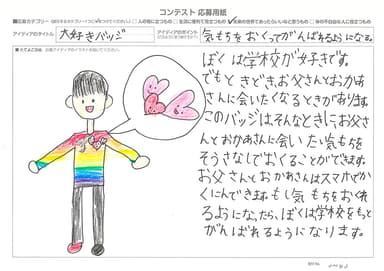 コンテスト 応募用紙
アイディアのタイトル 大好きバッジ
アイディアのポイント 気もちをおくってがんばれるようになる。
ぼくは学校が好きです。
でもときどき、お父さんとおかあ
さんに会いたくなるときがあります。
このバッジはそんなときに、お父さ
んとおかあさんに会いたい気もちを
そうさなしでおくることができます。
お父さんとおかあさんはスマホでか
くにんできます。もし気もちをおくれ
るようになったら、ぼくは学校をもっと
がんばれるようになります。